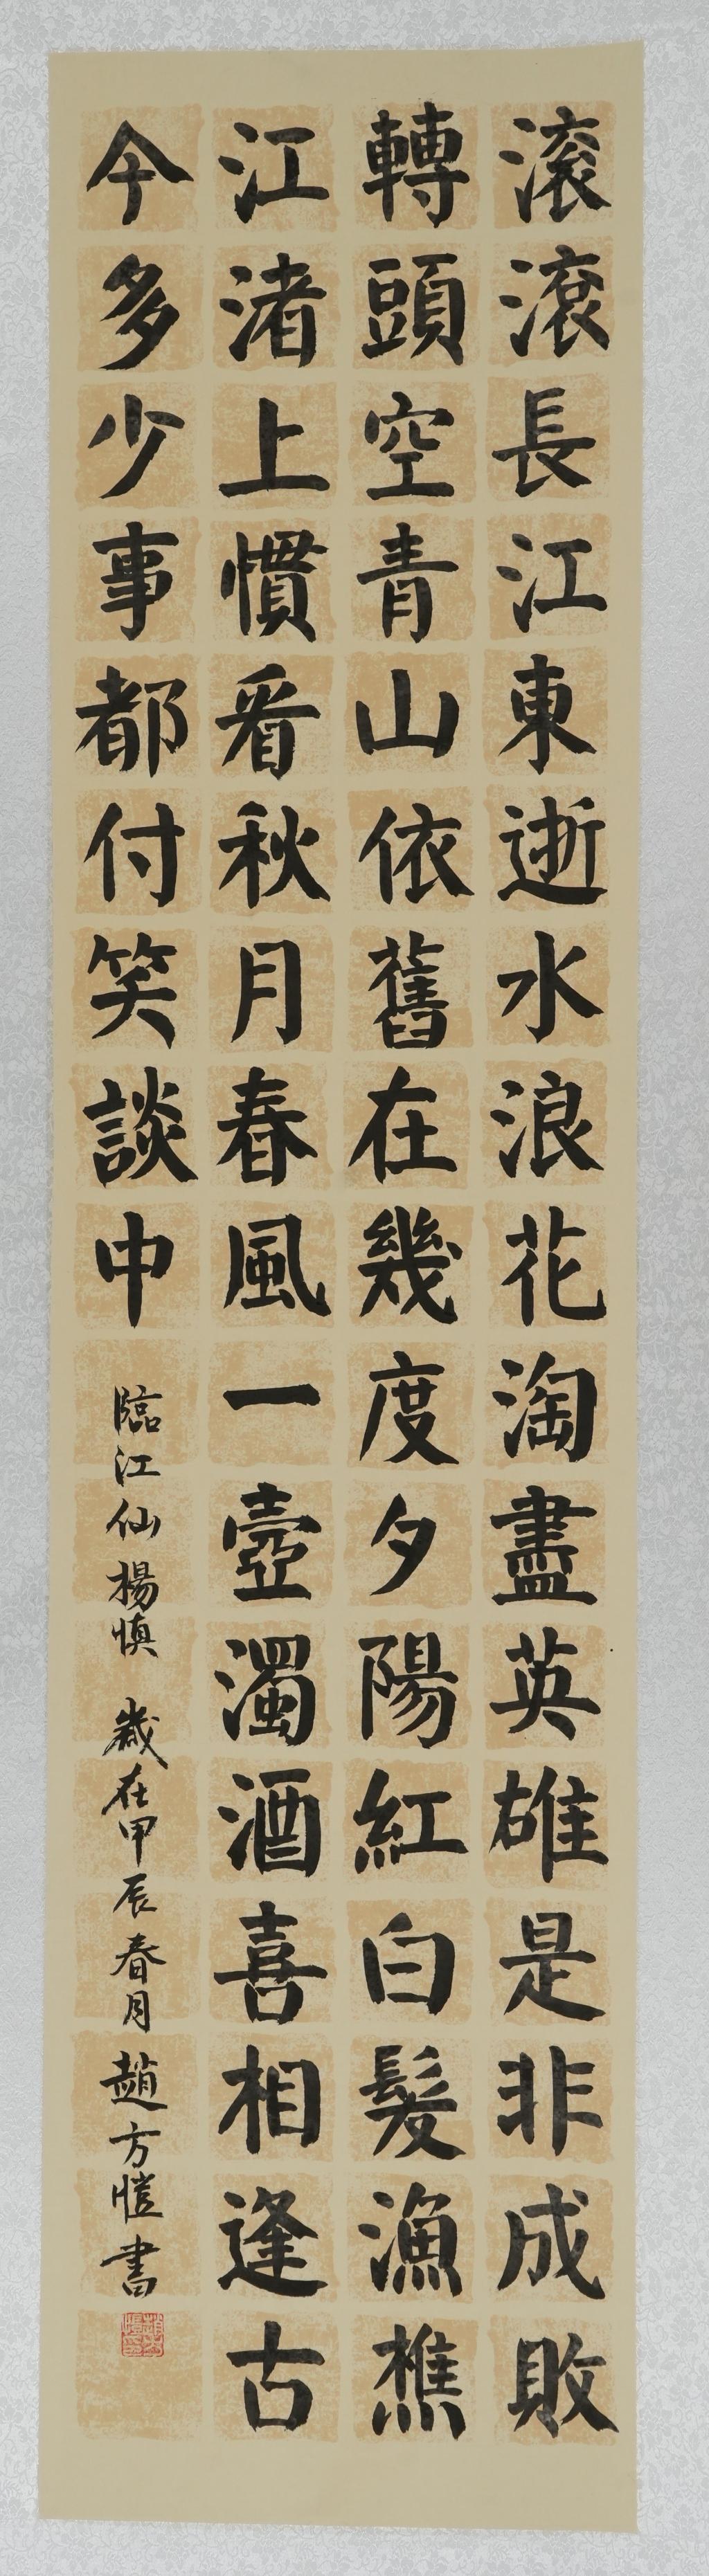 滚滚長江東逝水浪花淘盡英雄是非成敗
轉頭空青山依舊在幾度夕陽紅白髮漁樵
江渚上慣看秋月春風一壺濁酒喜相逢古
今多少事都付笑談中
臨江仙楊慎 歲在甲辰春月趙方愷書